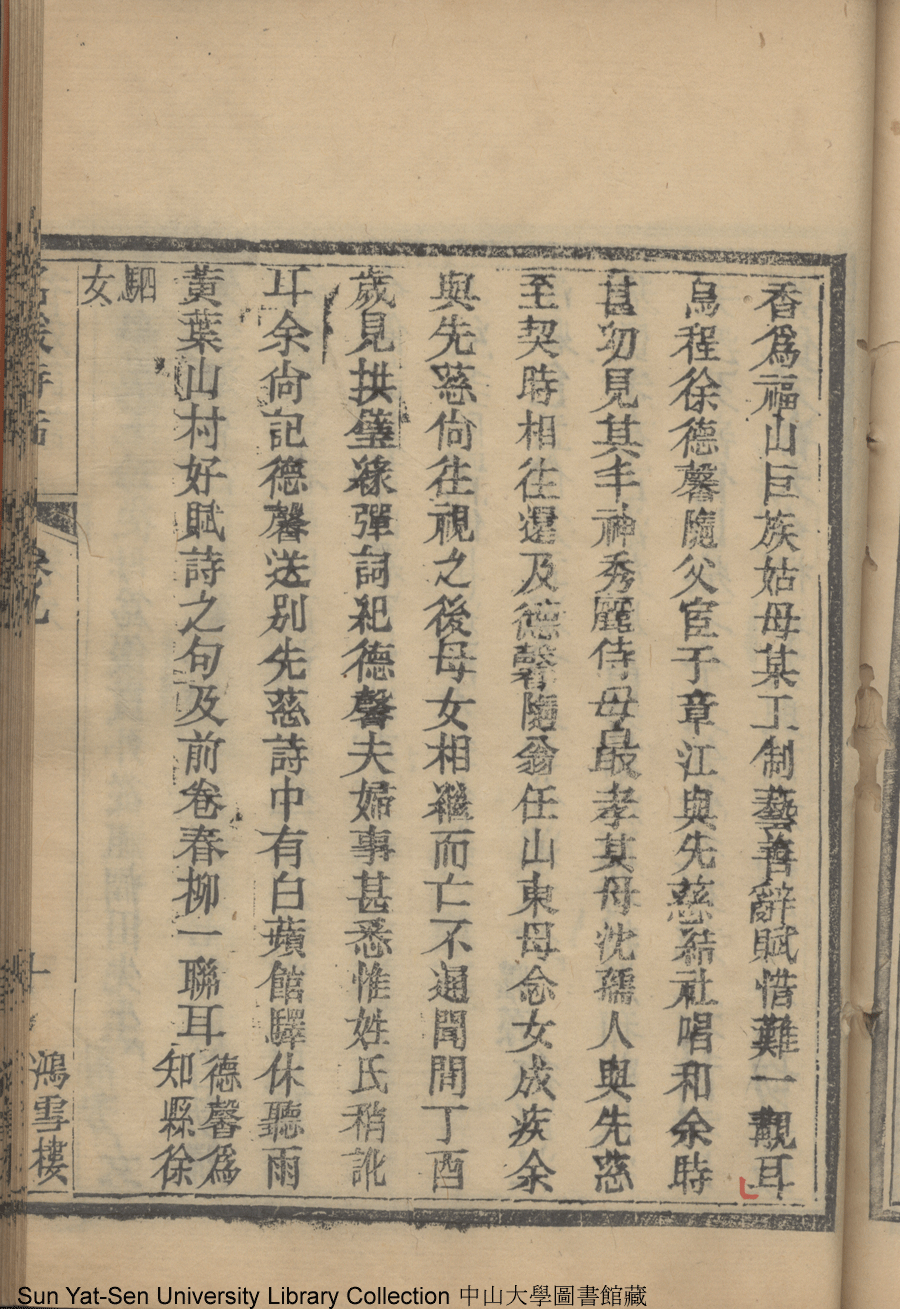 香爲福山巨族姑母某工制藝善辭賦惜難一覯耳
烏程徐德馨隨父宦于章江與先慈結社唱和余時
甚幼見其丰神秀麗侍母最孝其母沈孺人與先慈
至契時相往還及德馨隨翁任山東母念女成疾余
與先慈尙往視之後母女相繼而亡不通聞問丁酉
歲見拱璧緣彈詞紀德馨夫婦事甚悉惟姓氏稍訛
耳余尙記德馨送別先慈詩中有白蘋館驛休聽雨
黃葉山村好賦詩之句及前卷春柳一聯耳德馨爲知縣徐
駟女
名媛詩話 卷九 十 鴻雪樓
Sun Yat-Sen University Library Collection 中山大學圖書館藏